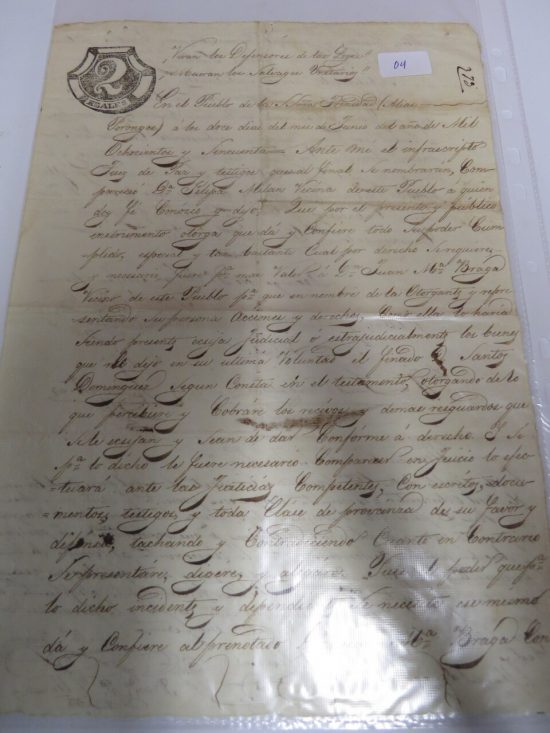 2
REALES
¡Vivan los Defensores de las Leyes!
¡Mueran los Salvages Unitarios!
04
272
En el Pueblo de la Sma Trinidad (Alias
Porongos) á los doce dias del mes de Junio del año de Mil
Ochocientos y Sincuenta Ante mi el infrascripto
Juez de Paz y testigos que al final se nombrarán, Com-
pareció Da Felipa Milan Vecina de este Pueblo a quien
doy fé Conosco y dijo, Que por el presente y público
instrumento otorga que dá y Confiere todo su poder Cum-
plido, especial y tan bastante Cual por derecho se requiere
y necesario fuese pa mas Valer á Dn Juan Ma Braga
Vecino de este Pueblo pa que en nombre de la Otorgante y repre-
sentando su persona Acciones y derechos, ella lo haria
siendo presente, judicial ó extrajudicialmente los bienes
que dejo en su ultima Voluntad el finado Santos
Dominguez Segun Consta en el testamento, otorgando de lo
que percibiere y Cobráre los recivos y demas resguardos que
se le y Sean de dar Conforme á derecho. Y Si
pa lo dicho le fuere necesario Comparecer en Juicio lo efec-
tuará ante las Justicias Competentes, Con escritos, docu-
mentos, testigos, y toda Clase de provanza de su favor y
defensa, tachando y Contradiciendo Cuanto en Contrario
Se representáre, digere, y alegare. Pues el poder que pa
lo dicho incidente y dependiente Se necesite ese mismo
dá y Confiere al prenotado Ma Braga Con